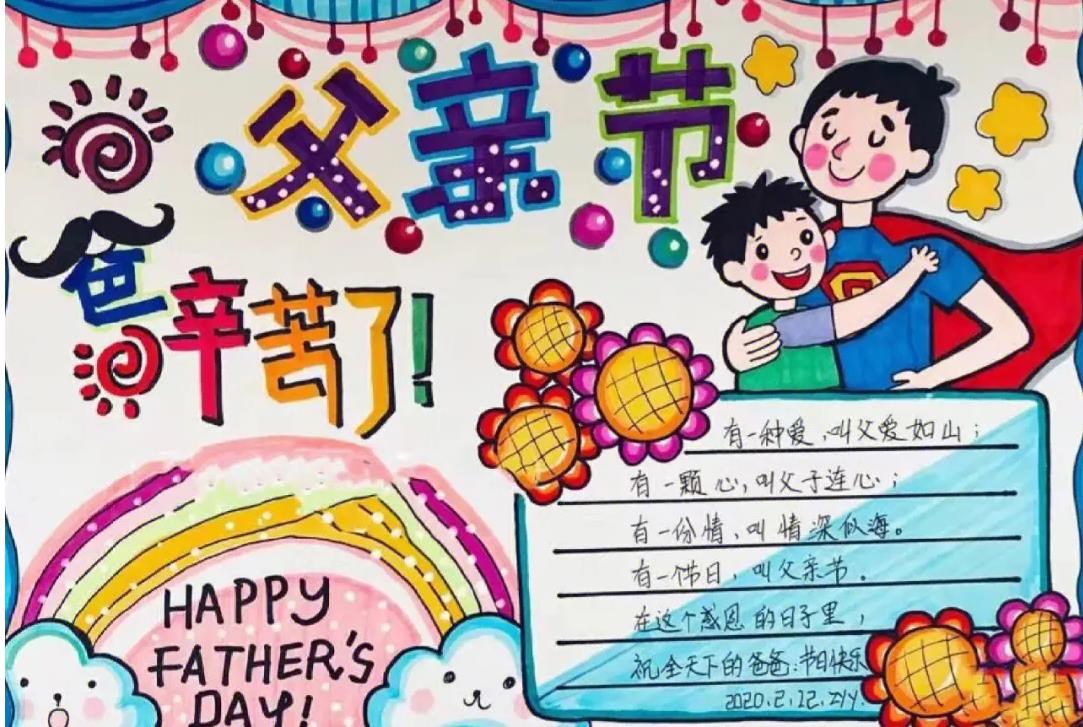 父亲节
爸辛苦了!
有一种爱,叫父爱如山;
有一颗心,叫父子连心;
有一份情,叫情深似海。
有一个节日,叫父亲节。
在这个感恩的日子里,
祝全天下的爸爸:节日快乐
2020.2.12.ZYY.
HAPPY
FATHER'S
DAY!